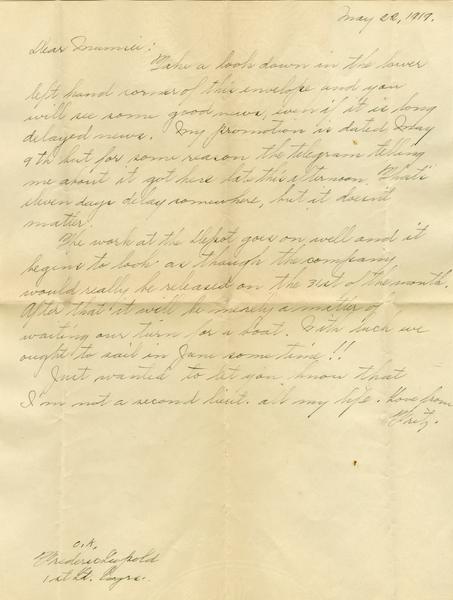 May 22, 1919.
Dear Mamsie:
Take a look down in the lower
left hand corner of this envelope and you
will see some good news, even if it is long
delayed news. My promotion is dated May
9th but for some reason the telegram telling
me about it got here late this afternoon. That's
eleven days delay somewhere, but it doesn't
matter.
The work at the Depot goes on well and it
begins to look as though the company
would really be released on the 31st of the month.
After that it will be merely a matter of
waiting our turn for a boat. With luck we
ought to sail in June some time!!
Just wanted to let you know that
I'm not a second lieut. all my life. Love from
Fritz.
O.K.
Frederic Leopold
1st Lt. Engrs.